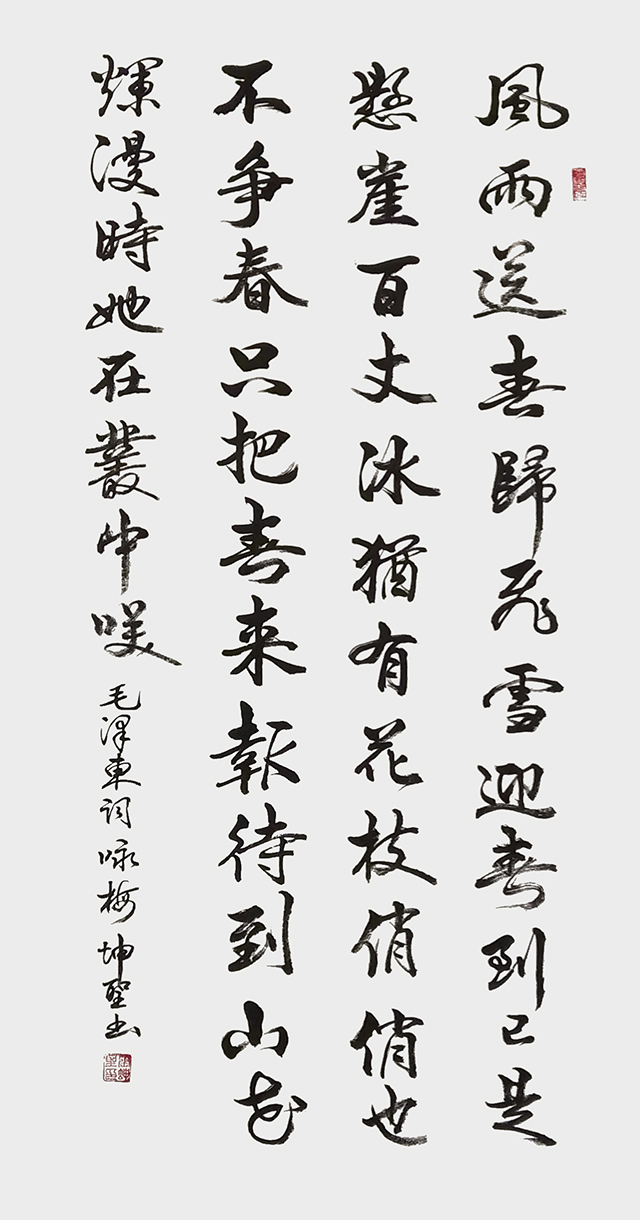 風雨送春歸飛雪迎春到已是
懸崖百丈冰猶有花枝俏俏也
不争春只把春来報待到山花
爛漫時她在叢中咲
毛泽東词咏梅坤聖书